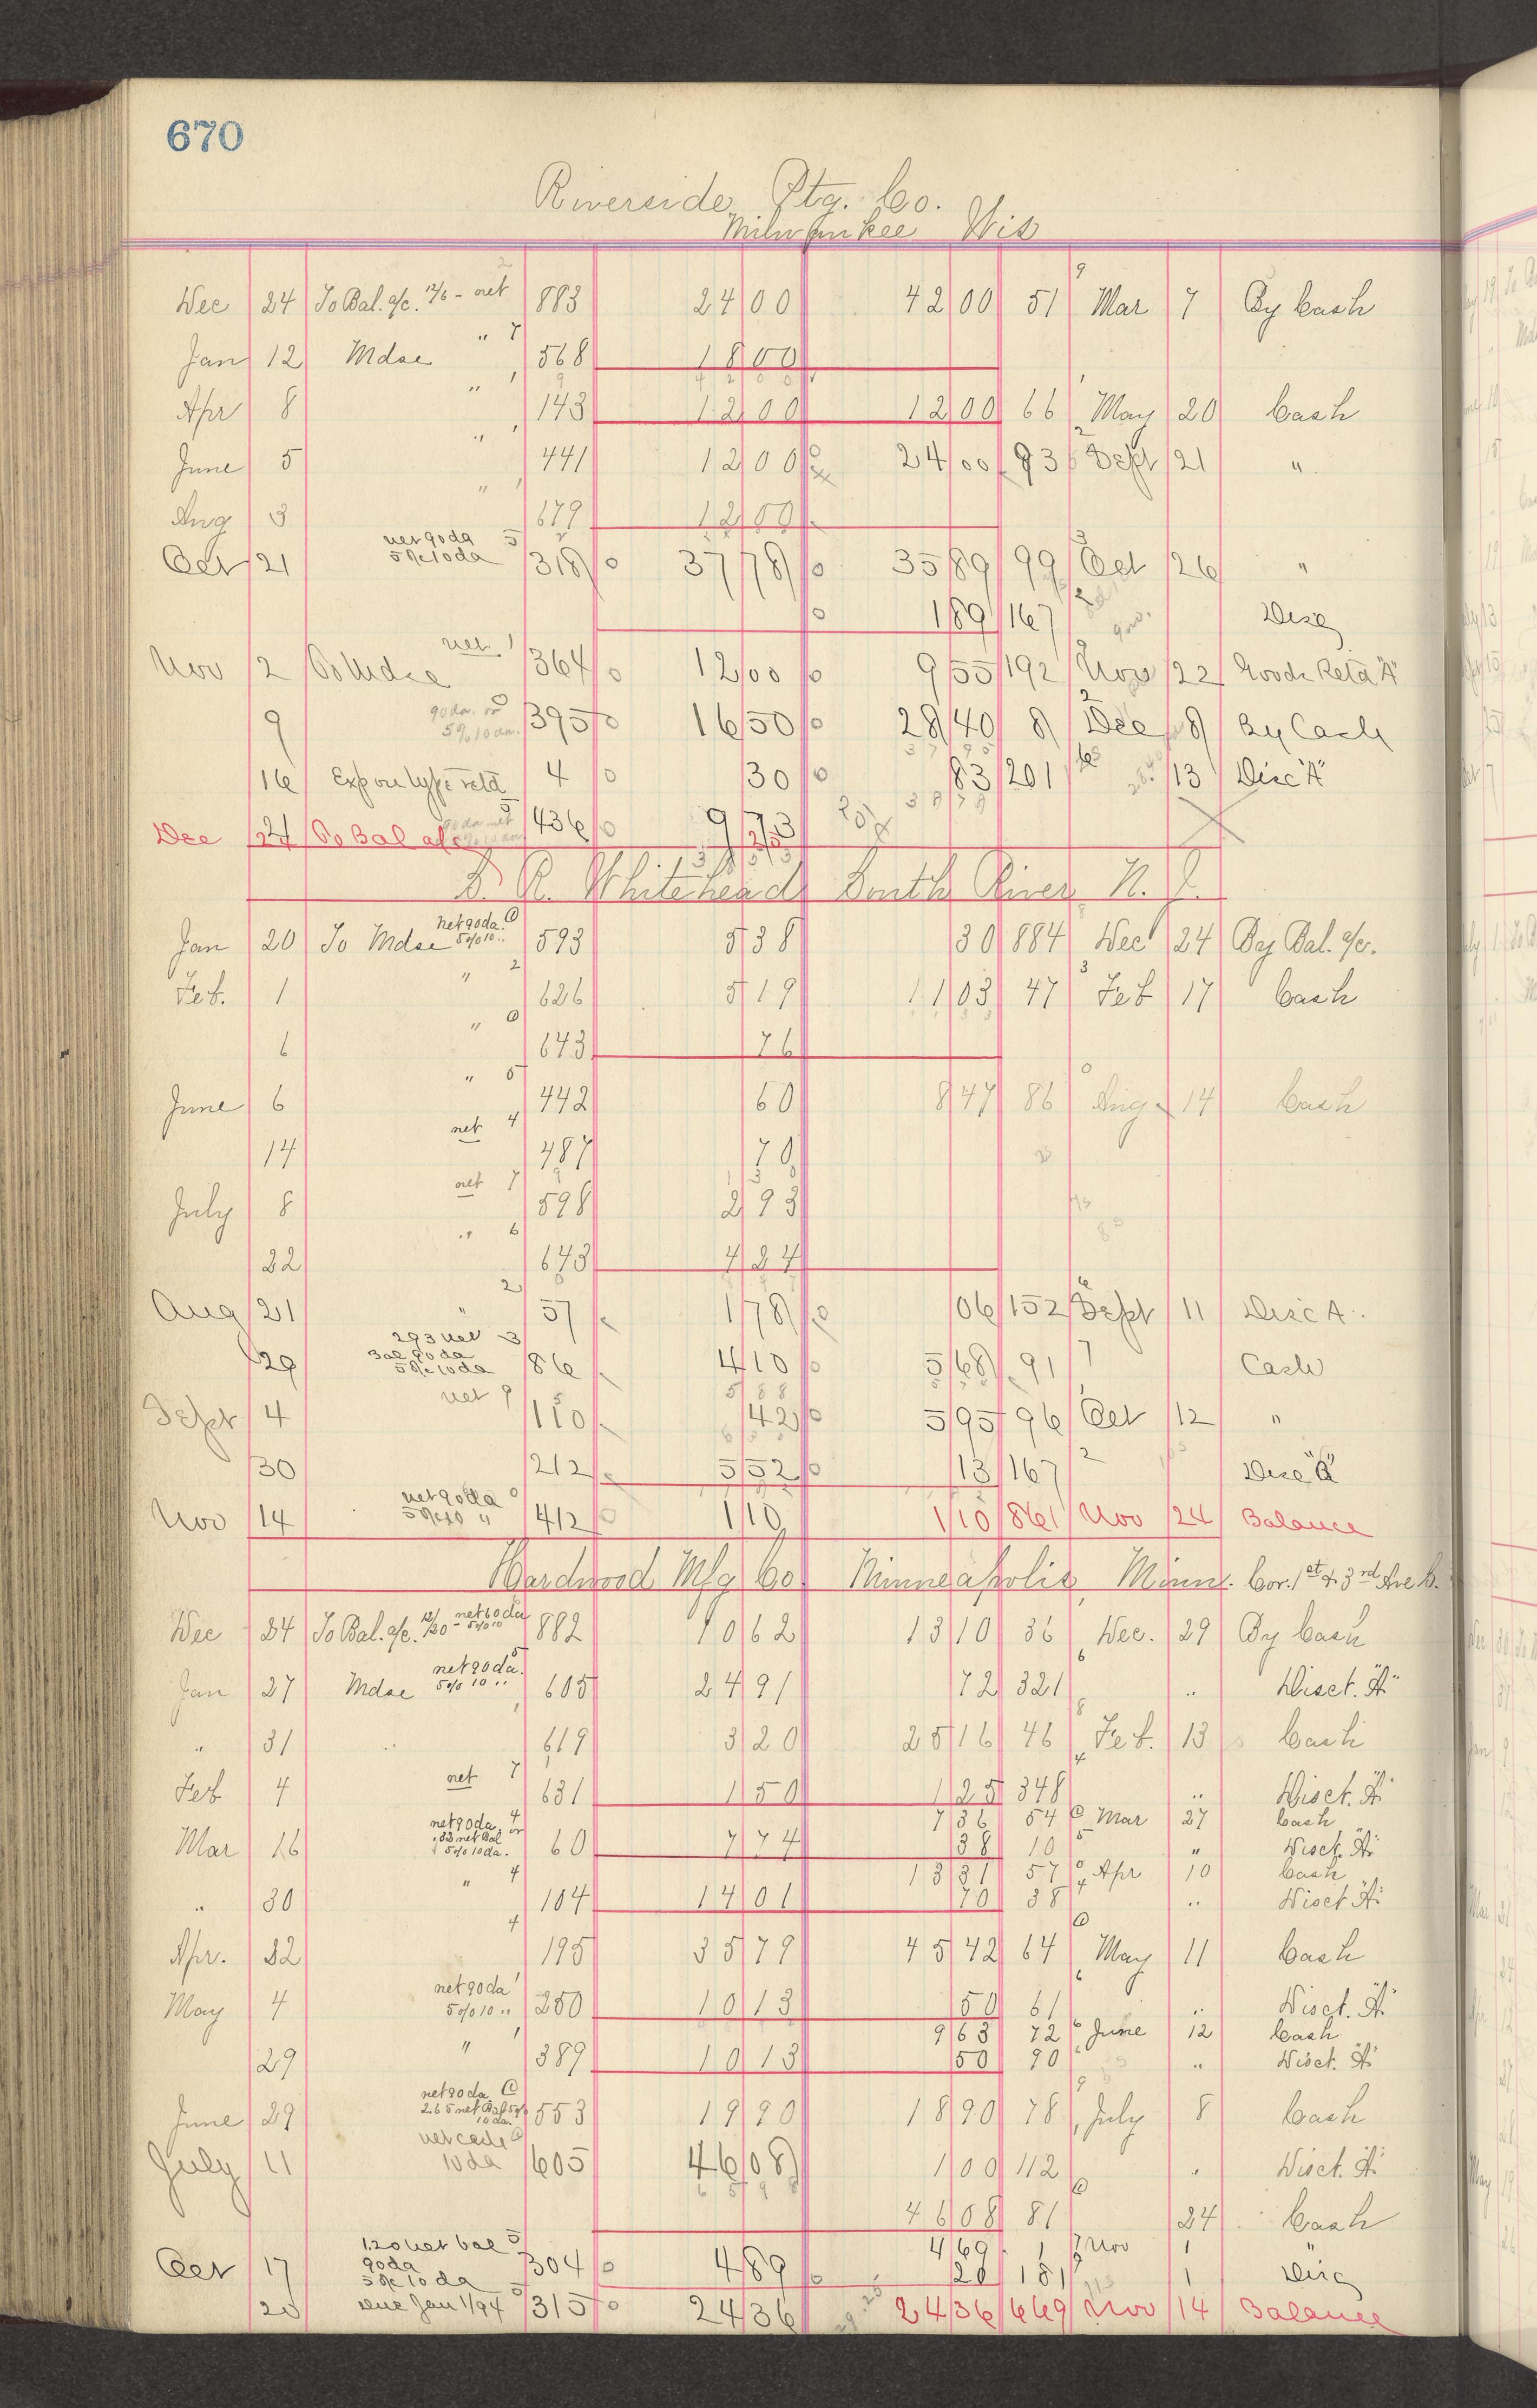 670
Riverside Ptg. Co.
Milwaukee Wis
Dec 24 To Bal. a/c. 12/6 - net 883 24 00 42 00 51 Mar 7 By Cash
Jan 12 Mdse " 7 568 18 00
Apr 8 " 143 12 00 12 00 66 May 20 Cash
June 5 " 441 12 00 24 00 93 Sept 21 "
Aug 3 " 679 12 00
Oct 21 net 90 da 5% 10 da 318 37 78 35 89 99 Oct 26 "
1 89 167 Disc
Nov 2 To Mdse net 364 12 00 9 55 192 Nov 22 Goods Retd "A"
9 90 da. or 5% 10 da. 395 16 50 28 40 8 Dec 8 By Cash
16 Exp on type retd 4 30 83 201 13 Disc "A"
436 9 73
Dec 24 To Bal a/c
D. R. Whitehead South River N. J.
Jan 20 To Mdse net 90 da. 5% 10 " 593 5 38 30 884 Dec 24 By Bal. a/c.
Feb. 1 " 2 626 5 19 11 03 47 Feb 17 Cash
6 " 643 76
June 6 " 5 442 60 8 47 86 Aug 14 Cash
14 net 4 487 70
July 8 net 7 598 2 93
22 " 6 643 4 24
Aug 21 " 2 57 1 78 06 152 Sept 11 Disc A
29 293 net 3 Bal 90 da 5% 10 da 86 4 10 5 68 91 7 Cash
Sept 4 net 9 110 42 5 95 96 Oct 12 "
30 212 5 52 13 167 Disc "A"
Nov 14 net 90 da 5% 10 " 412 1 10 1 10 861 Nov 24 Balance
Hardwood Mfg Co. Minneapolis Minn. Cor. 1st & 3rd Ave N.
Dec 24 To Bal. a/c. net 60 da 5% 10 882 10 62 13 10 36 Dec. 29 By Cash
Jan 27 Mdse net 90 da. 5% 10 " 605 24 91 72 321 " Disct. "A"
" 31 " 619 3 20 25 16 46 Feb. 13 Cash
Feb 4 net 7 631 1 50 1 25 348 " Disct. "A"
7 36 54 Mar 27 Cash
Mar 16 net 90 da. or .33 net Bal 5% 10 da. 60 7 74 38 10 " Disct. "A"
13 31 57 Apr 10 Cash
" 30 " 4 104 14 01 70 38 " Disct "A"
Apr. 22 4 195 35 79 45 42 64 May 11 Cash
May 4 net 90 da 5% 10 " 250 10 13 50 61 " Disct. "A"
9 63 72 June 12 Cash
29 " 389 10 13 50 90 " Disct. "A"
June 29 net 90 da 2.65 net Bal 5% 10 da. 553 19 90 18 90 78 July 8 Cash
July 11 net cash 10 da 605 46 08 1 00 112 " Disct. "A"
46 08 81 24 Cash
4 69 1 Nov 1 "
Oct 17 1.20 net bal 90 da 5% 10 da 304 4 89 20 181 1 Disc
20 Due Jan 1/94 315 24 36 24 36 669 Nov 14 Balance